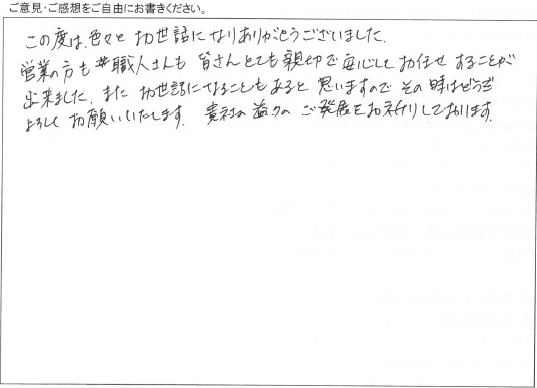 ご意見・ご感想をご自由にお書きください。
この度は、色々と お世話になりありがとうございました。
営業の方も 職人さんも 皆さんとても親切で安心して お任せ することが
出来ました。また お世話になることもあると 思いますので その時はどうぞ
よろしく お願いいたします。 貴社の 益々の ご発展をお祈りしております。